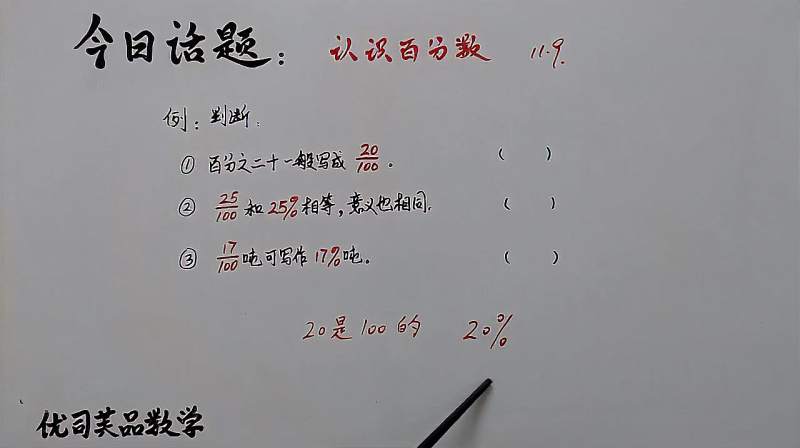 今日话题：认识百分数 11.9.
例：判断：
① 百分之二十一般写成 20/100 。 （ ）
② 25/100 和 25% 相等，意义也相同. （ ）
③ 17/100 吨可写作 17% 吨。 （ ）
20是100的 20%
优司芙品数学